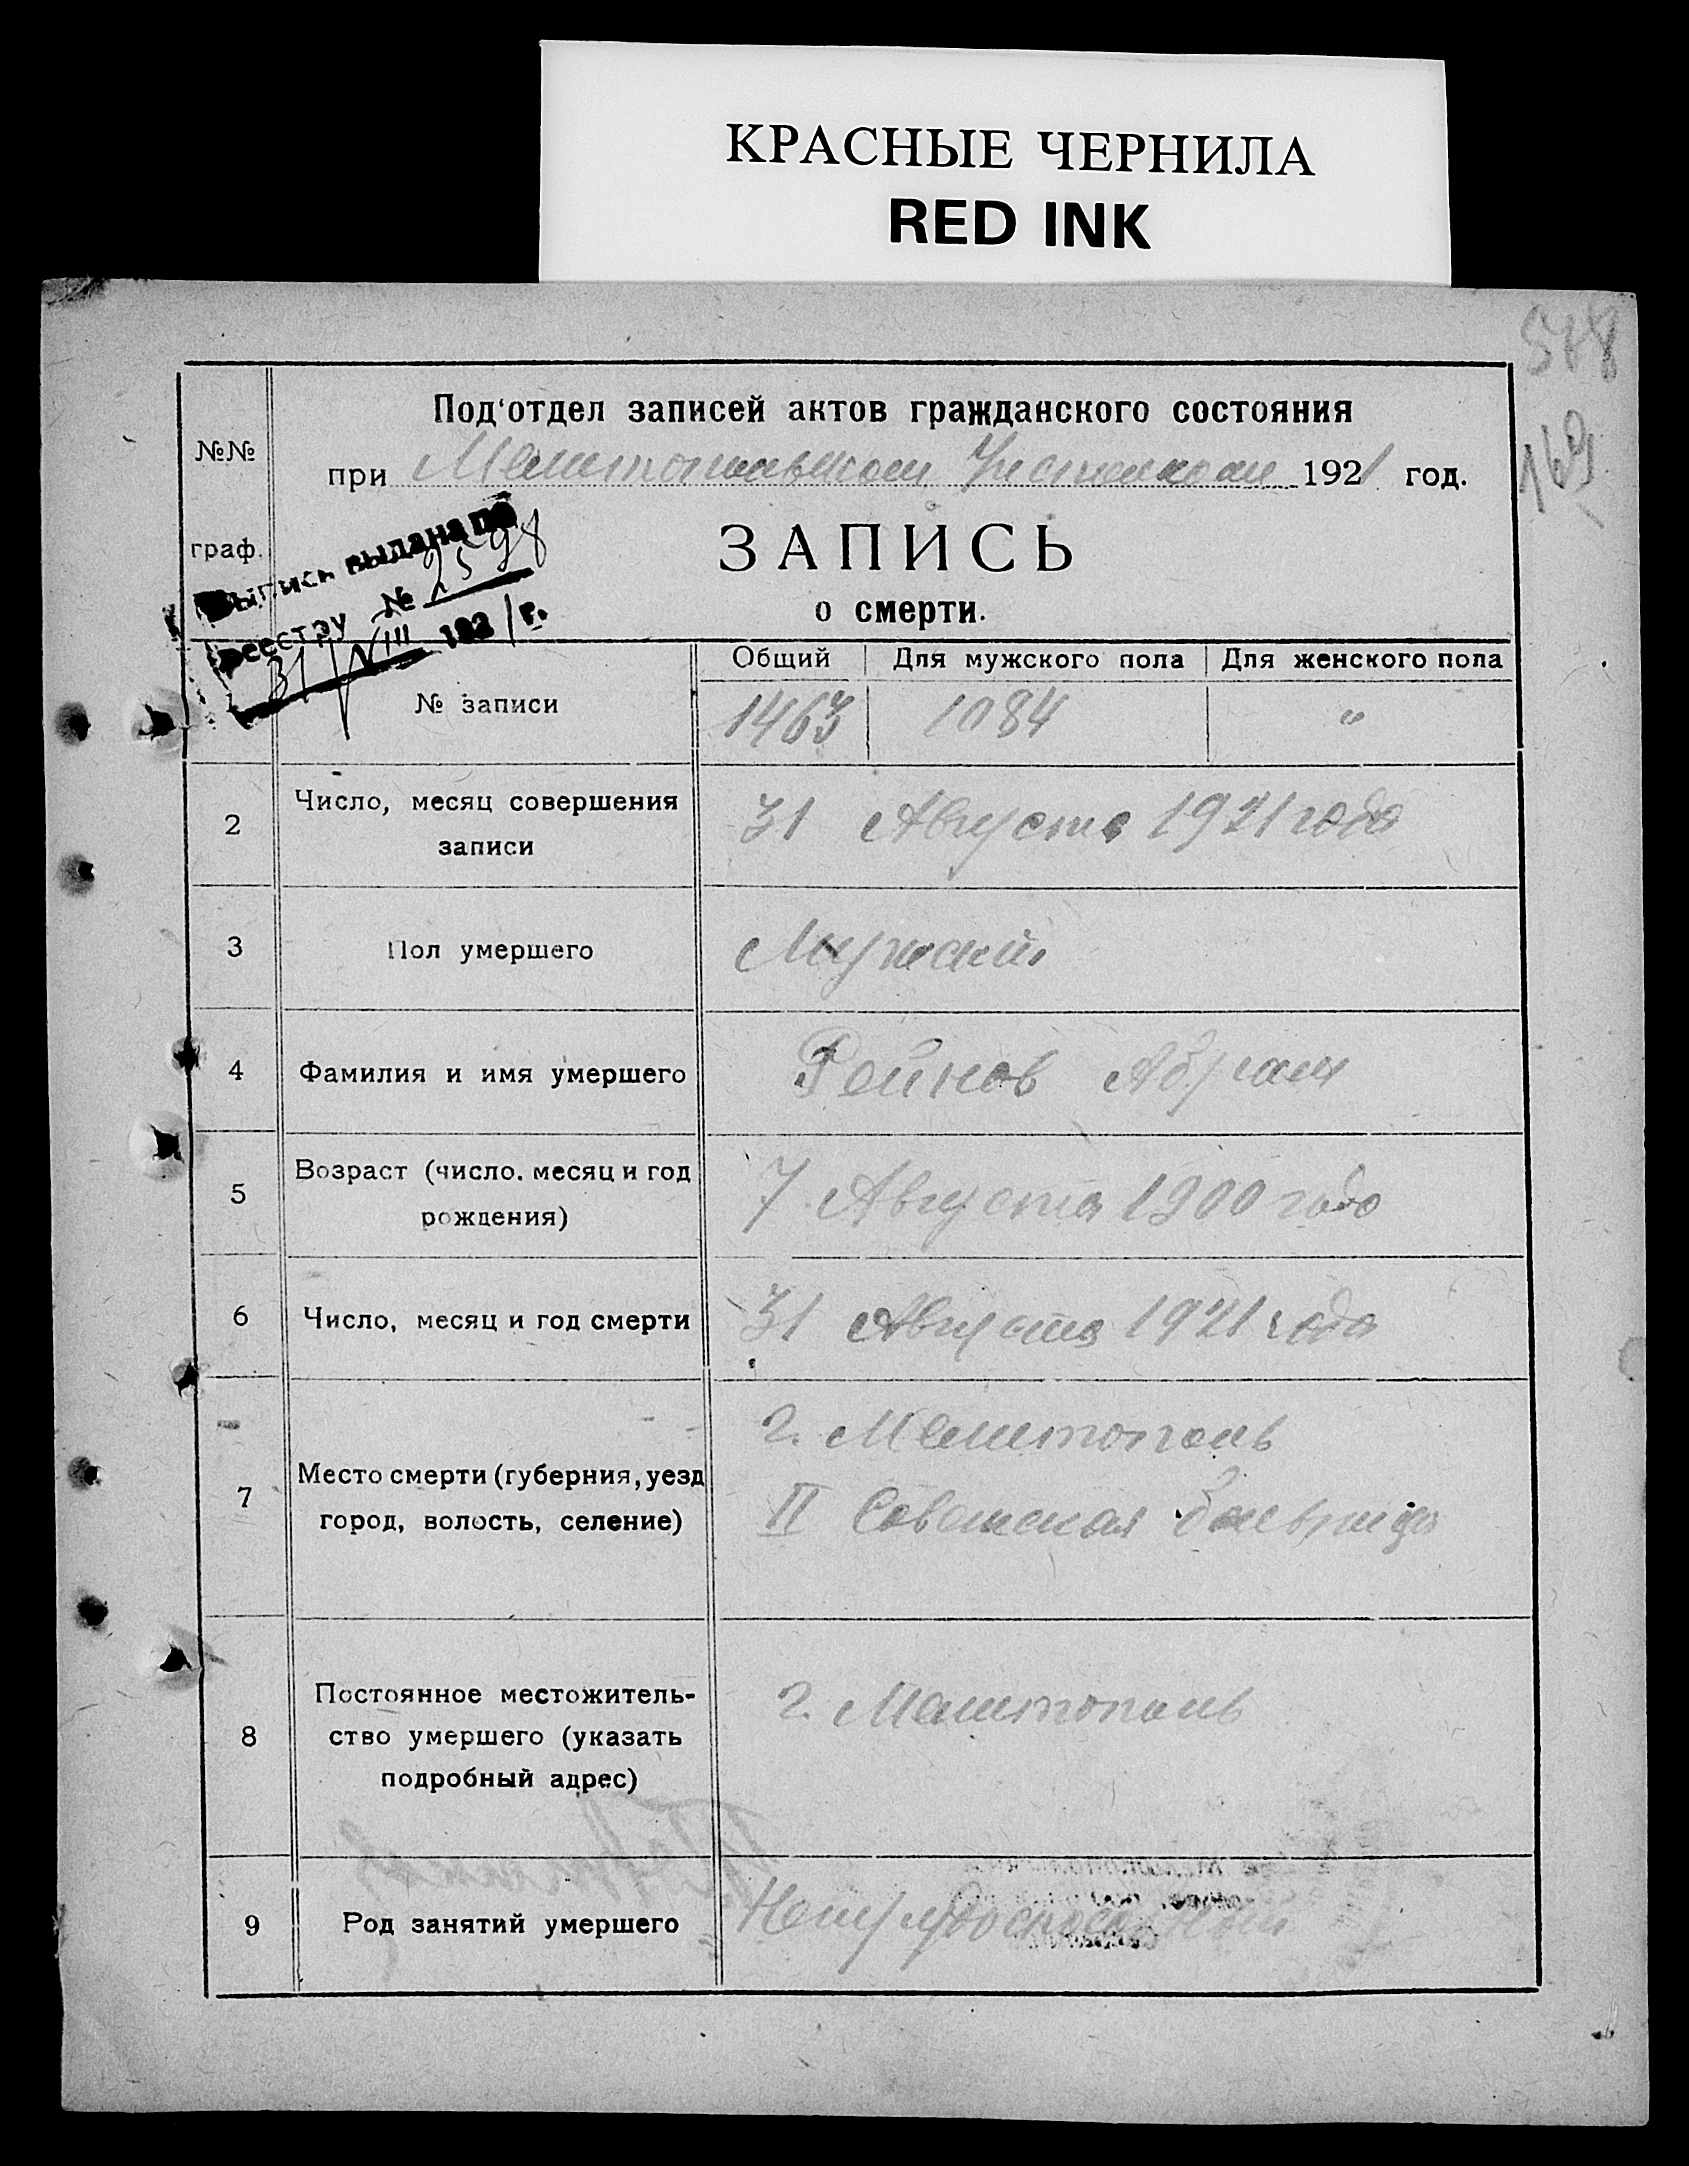 КРАСНЫЕ ЧЕРНИЛА
RED INK
578
169
Под'отдел записей актов гражданского состояния
№№
при Мелитопольском Уисполкоме 1921 год.
граф.
Выпись выдана по
реестру № 2598
31/VIII 1921 г.
ЗАПИСЬ
о смерти.
№ записи
Общий Для мужского пола Для женского пола
1463 1084 "
2 Число, месяц совершения записи
31 Августа 1921 года
3 Пол умершего
Мужской
4 Фамилия и имя умершего
Рейнов Абрам
5 Возраст (число, месяц и год рождения)
7 Августа 1900 года
6 Число, месяц и год смерти
31 Августа 1921 года
7 Место смерти (губерния, уезд город, волость, селение)
г. Мелитополь
II Советская больница
8 Постоянное местожитель-
ство умершего (указать
подробный адрес)
г. Мелитополь
9 Род занятий умершего
Нетрудоспособный